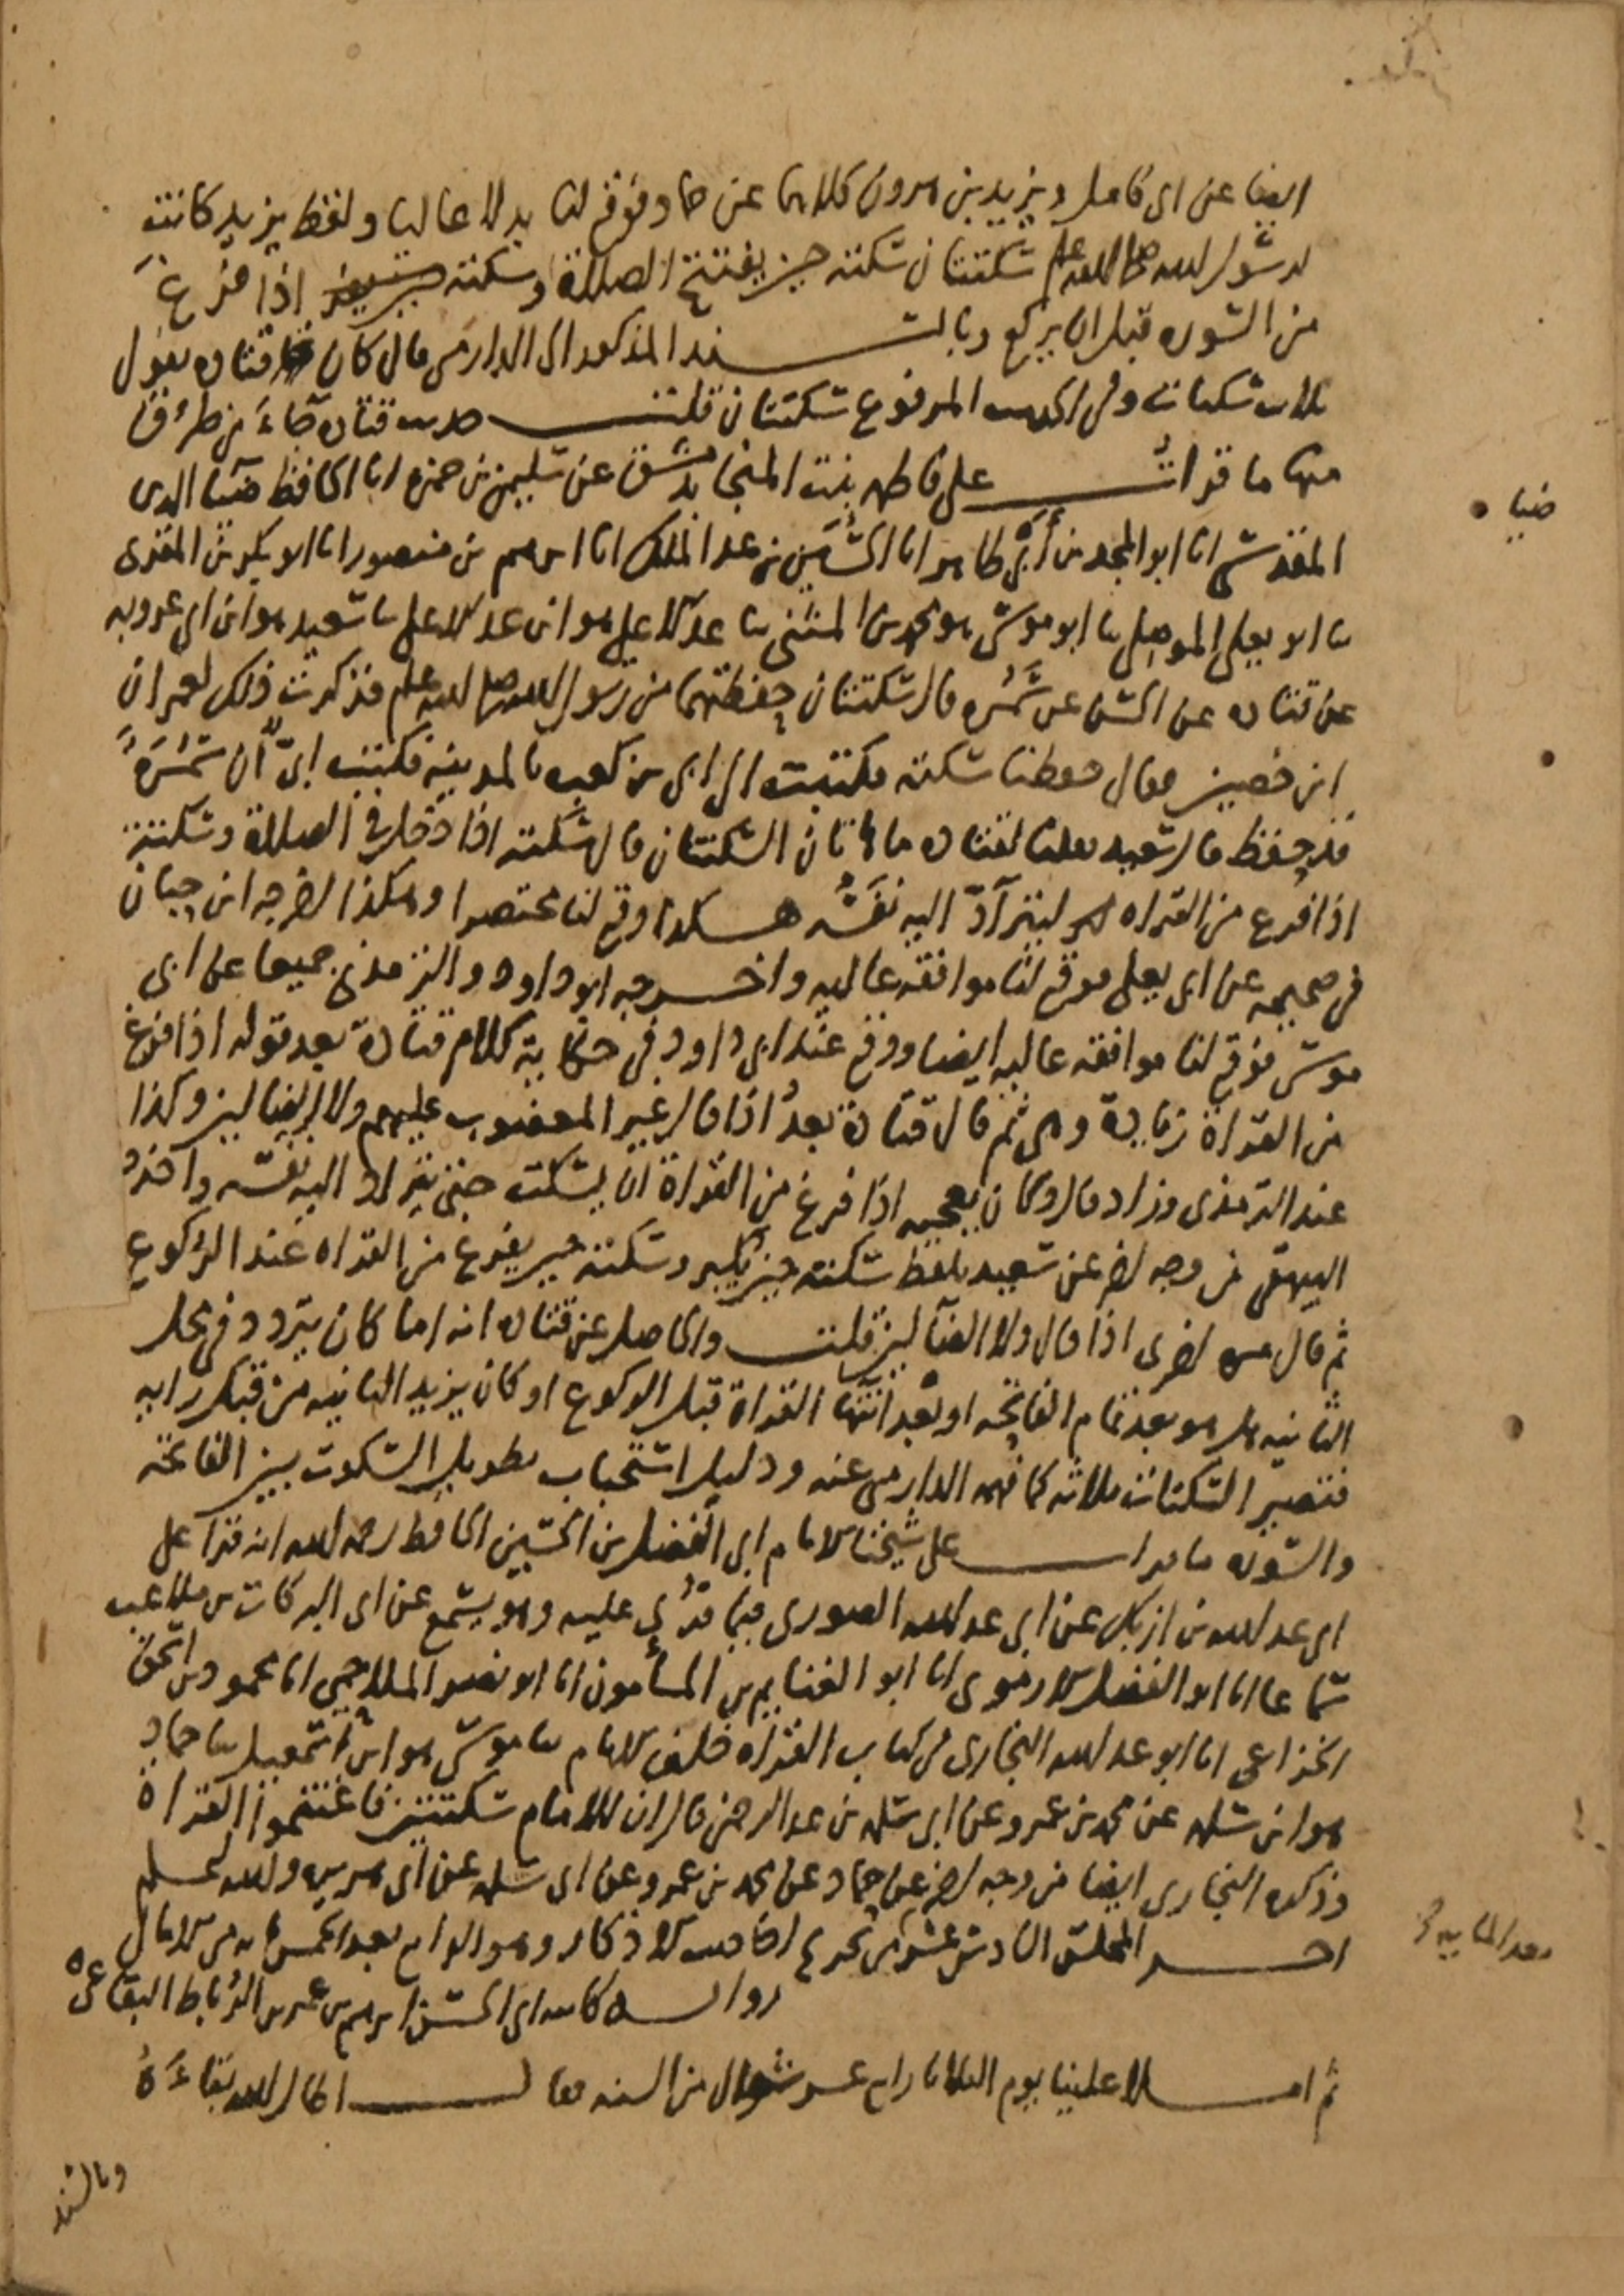 ايضا عن ابي كامل ويزيد بن هرون كلاهما عن حماد فوقع لنا بدلا عاليا ولفظ يزيد كانت
لرسول الله صلى الله عليه وسلم سكتتان سكتة حين يفتتح الصلاة وسكتة اذا فرغ
من السورة قبل ان يركع وبالسند المذكور الى الدارمي قال كان قتادة يقول
ثلاث سكتات وفي الحديث المرفوع سكتتان قلت حديث قتادة جاء من طرق
منها ما قرات على فاطمة بنت المنجا بدمشق عن سليمن بن حمزة انا الحافظ ضيا الدين
المقدسي انا ابو المجد بن أبي طاهر انا الحسين بن عبد الملك انا ابرهيم بن منصور انا ابو بكر بن المقري
ثنا ابو يعلى الموصلي ثنا ابو موسى هو محمد بن المثنى ثنا عبد الاعلى هو ابن عبد الاعلى ثنا سعيد هو ابن ابي عروبة
عن قتادة عن الحسن عن سمرة قال سكتتان حفظتهما من رسول الله صلى الله عليه وسلم فذكرت ذلك لعمران
ابن حصين فقال حفظنا سكتة فكتبت الى ابي بن كعب بالمدينة فكتب ابيّ أن سمرة
قد حفظ قال سعيد فقلنا لقتادة ما هاتان السكتتان قال سكتة اذا دخل في الصلاة وسكتة
اذا فرغ من القراة ليترآدّ اليه نفسُه هكذا وقع لنا مختصرا وهكذا اخرجه ابن حبان
في صحيحه عن ابي يعلى فوقع لنا موافقة عالية واخرجه ابو داود والترمذي جميعا عن ابي
موسى فوقع لنا موافقة عالية ايضا ووقع عند ابي داود في حكاية كلام قتادة بعد قوله اذا فرغ
من القراة زيادة وهي ثم قال قتادة بعدُ اذا قال غير المغضوب عليهم ولا الضالين وكذا
عند الترمذي وزاد قال وكان يعجبه اذا فرغ من القراة ان يسكت حتى يتراد اليه نفسه واخرجه
البيهقي من وجه اخر عن سعيد بلفظ سكتة حين يكبر وسكتة حين يفرغ من القراة عند الركوع
ثم قال مرة اخرى اذا قال ولا الضآلين قلت والحاصل عن قتادة انه اما كان يتردد في محل
الثانية هل هو بعد تمام الفاتحة او بعد انتهآ القراة قبل الركوع او كان يزيد الثانية من قبل رايه
فتصير السكتات ثلاثة كما فهم الدارمي عنه ودليل استحباب تطويل السكوت بين الفاتحة
والسورة ما قرات على شيخنا الامام ابي الفضل بن الحسين الحافظ رحمه الله انه قرا على
ابي عبد الله بن ازبك عن ابي عبد الله الصوري فيما قرئ عليه وهو يسمع عن ابي البركات بن ملاعب
سماعا انا ابو الفضل الارموي انا ابو الغنايم بن المأمون انا ابو نصر الملاحمي انا محمود بن اسحق
الخزاعي انا ابو عبد الله البخاري في كتاب القراة خلف الامام ثنا موسى هو ابن اسمعيل ثنا حماد
هو ابن سلمة عن محمد بن عمرو عن ابي سلمة بن عبد الرحمن قال ان للامام سكتتين فاغتنموا القراة
وذكره البخاري ايضا من وجه اخر عن حماد عن محمد بن عمرو عن ابي سلمة عن ابي هريرة والله اعلم
اخر المجلس السادس عشر من تخريج احاديث الاذكار وهو الرابع بعد الخمسماية من الامالي
رواية كاتبه ابي الحسن ابرهيم بن عمر بن الرُباط البقاعي
ثم املا علينا يوم الثلاثا رابع عشر شوال من السنة فقال اطال الله بقاءَهُ
وبالسند
ضيا
بعد الثانية